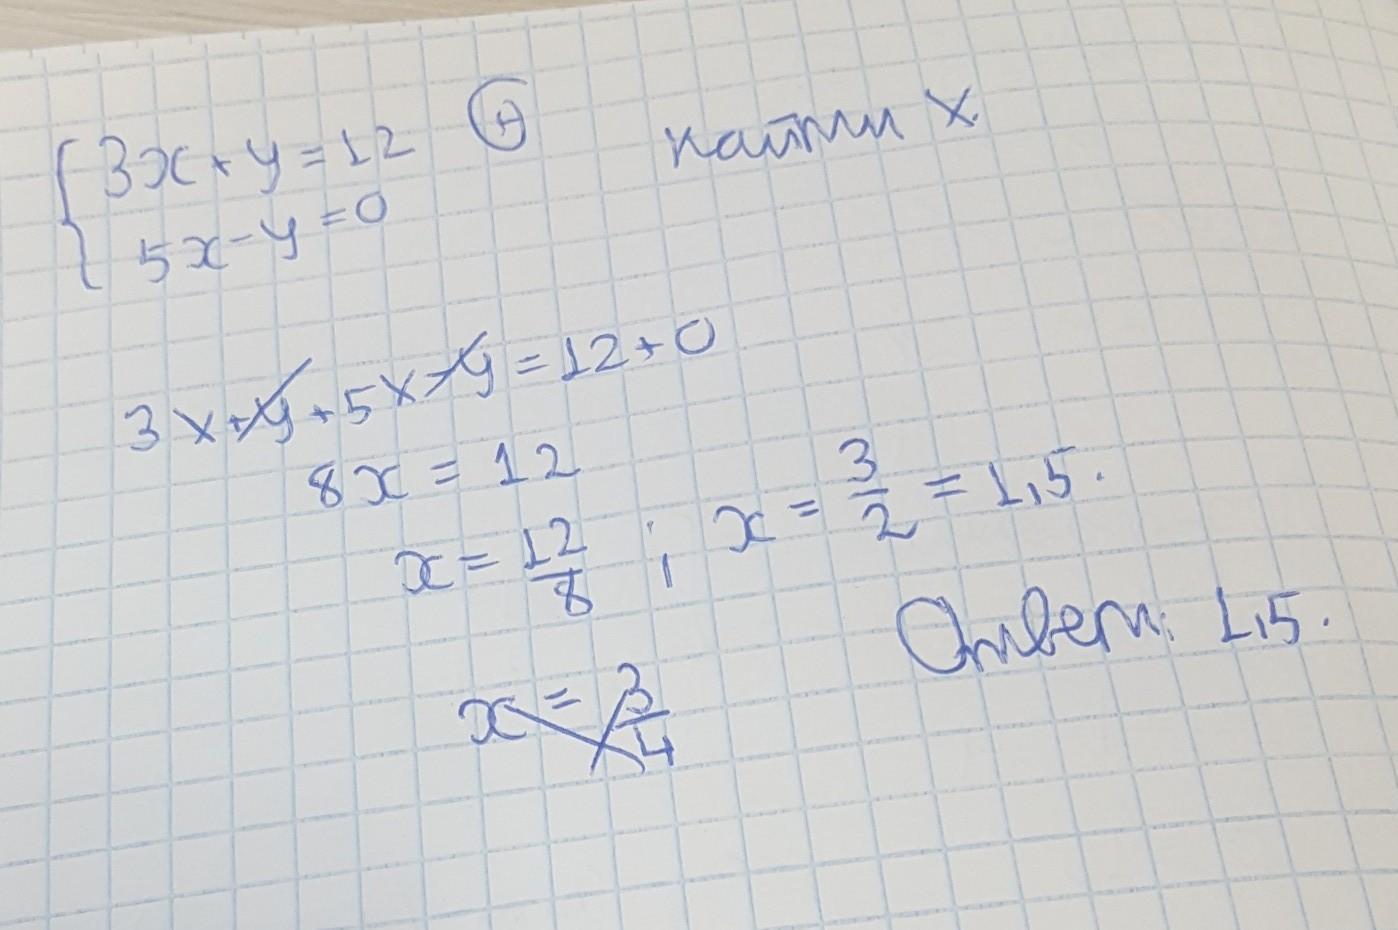 3x+y=12 (+) найти x.
5x-y=0
3x+y+5x-y=12+0
8x=12
x=12/8 ; x=3/2=1,5.
Ответ: 1,5.
x=3/4